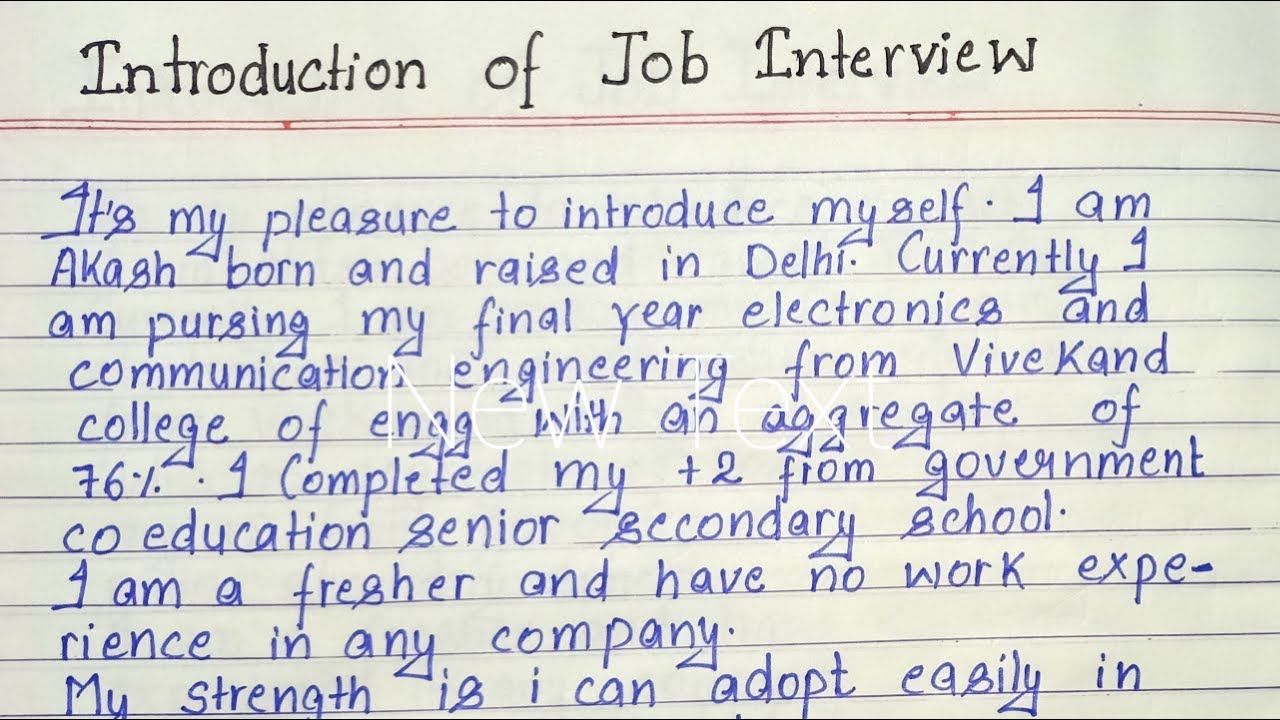 Introduction of Job Interview
It's my pleasure to introduce myself. I am
Akash born and raised in Delhi. Currently I
am pursing my final year electronics and
communication engineering from Vivekand
college of engg with an aggregate of
76%. I Completed my +2 from government
co education senior secondary school.
I am a fresher and have no work expe-
rience in any company.
My strength is i can adopt easily in
New Text